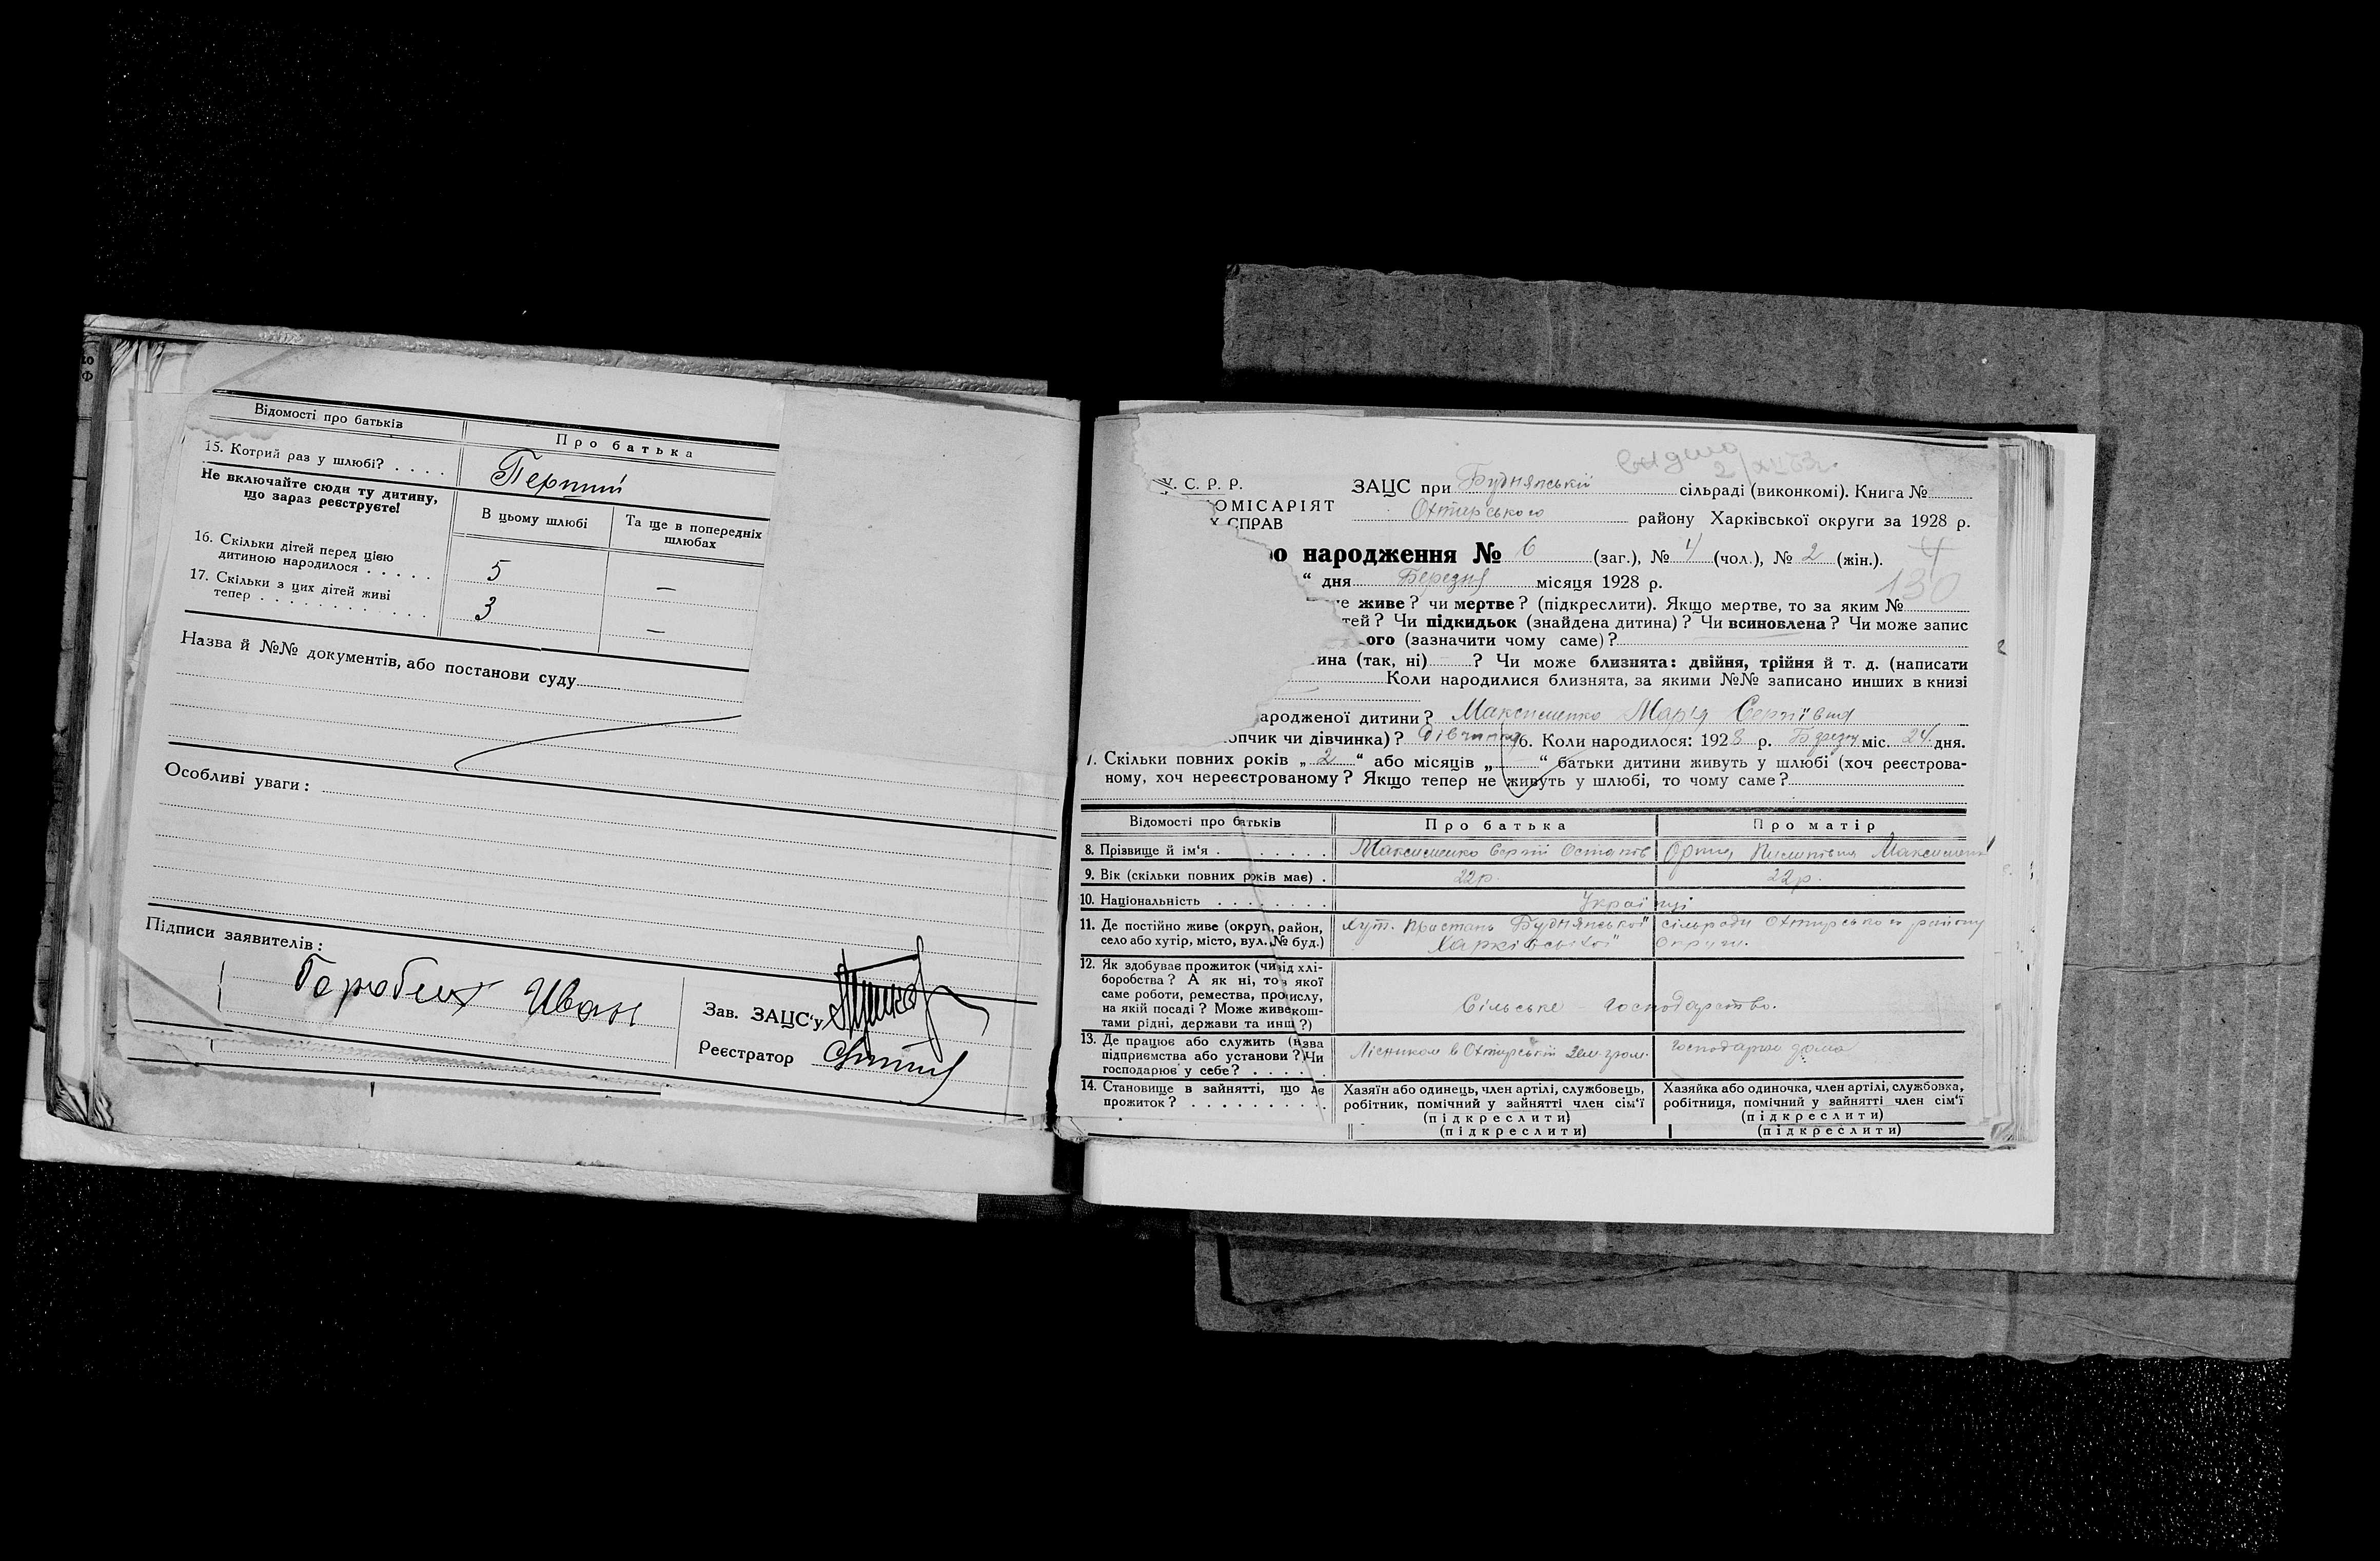 Відомості про батьків
Про батька
15. Котрий раз у шлюбі? . . . .
Перший
Не включайте сюди ту дитину,
що зараз реєструєте!
В цьому шлюбі
Та ще в попередніх
шлюбах
16. Скільки дітей перед цією
дитиною народилося . . . . .
5
—
17. Скільки з цих дітей живі
тепер . . . . . . . . . . . .
3
—
Назва й №№ документів, або постанови суду
Особливі уваги:
Підписи заявителів:
Іван
Зав. ЗАЦС'у
Реєстратор
У. С. Р. Р.
ОМІСАРІЯТ
Х СПРАВ
ЗАЦС при Буднянській сільраді (виконкомі). Книга №
Охтирського району Харківської округи за 1928 р.
о народження № 6 (заг.), № 4 (чол.), № 2 (жін.).
4
130
“ дня Березня місяця 1928 р.
е живе? чи мертве? (підкреслити). Якщо мертве, то за яким №
тей? Чи підкидьок (знайдена дитина)? Чи всиновлена? Чи може запис
ого (зазначити чому саме)?
ина (так, ні) ? Чи може близнята: двійня, трійня й т. д. (написати
Коли народилися близнята, за якими №№ записано инших в книзі
ародженої дитини? Максименко Марія Сергіївна
опчик чи дівчинка)? дівчинка 6. Коли народилося: 1928 р. Березня міс. 24 дня.
7. Скільки повних років „ 2 “ або місяців „ “ батьки дитини живуть у шлюбі (хоч реєстрова-
ному, хоч нереєстрованому? Якщо тепер не живуть у шлюбі, то чому саме?
Відомості про батьків
Про батька
Про матір
8. Прізвище й ім'я . . . . . . . .
Максименко Сергій Остапов
Орина Пилипівна Максименко
9. Вік (скільки повних років має) .
22 р.
22 р.
10. Національність . . . . . . . .
Українці
11. Де постійно живе (округ, район,
село або хутір, місто, вул. № буд.)
Хут. Пристань Буднянської сільради Охтирського району
Харківської округи.
12. Як здобуває прожиток (чи від хлі-
боробства? А як ні, то з якої
саме роботи, ремества, промислу,
на якій посаді? Може живе кош-
тами рідні, держави та инш.?)
Сільське господарство.
13. Де працює або служить (назва
підприємства або установи? Чи
господарює у себе? . . . . .
Лісником в Охтирській зем. гром.
господарює дома
14. Становище в зайнятті, що дає
прожиток? . . . . . . . . . .
Хазяїн або одинець, член артілі, службовець,
робітник, помічний у зайнятті член сім'ї
(підкреслити)
Хазяйка або одиночка, член артілі, службовка,
робітниця, помічний у зайнятті член сім'ї
(підкреслити)
(підкреслити)
(підкреслити)